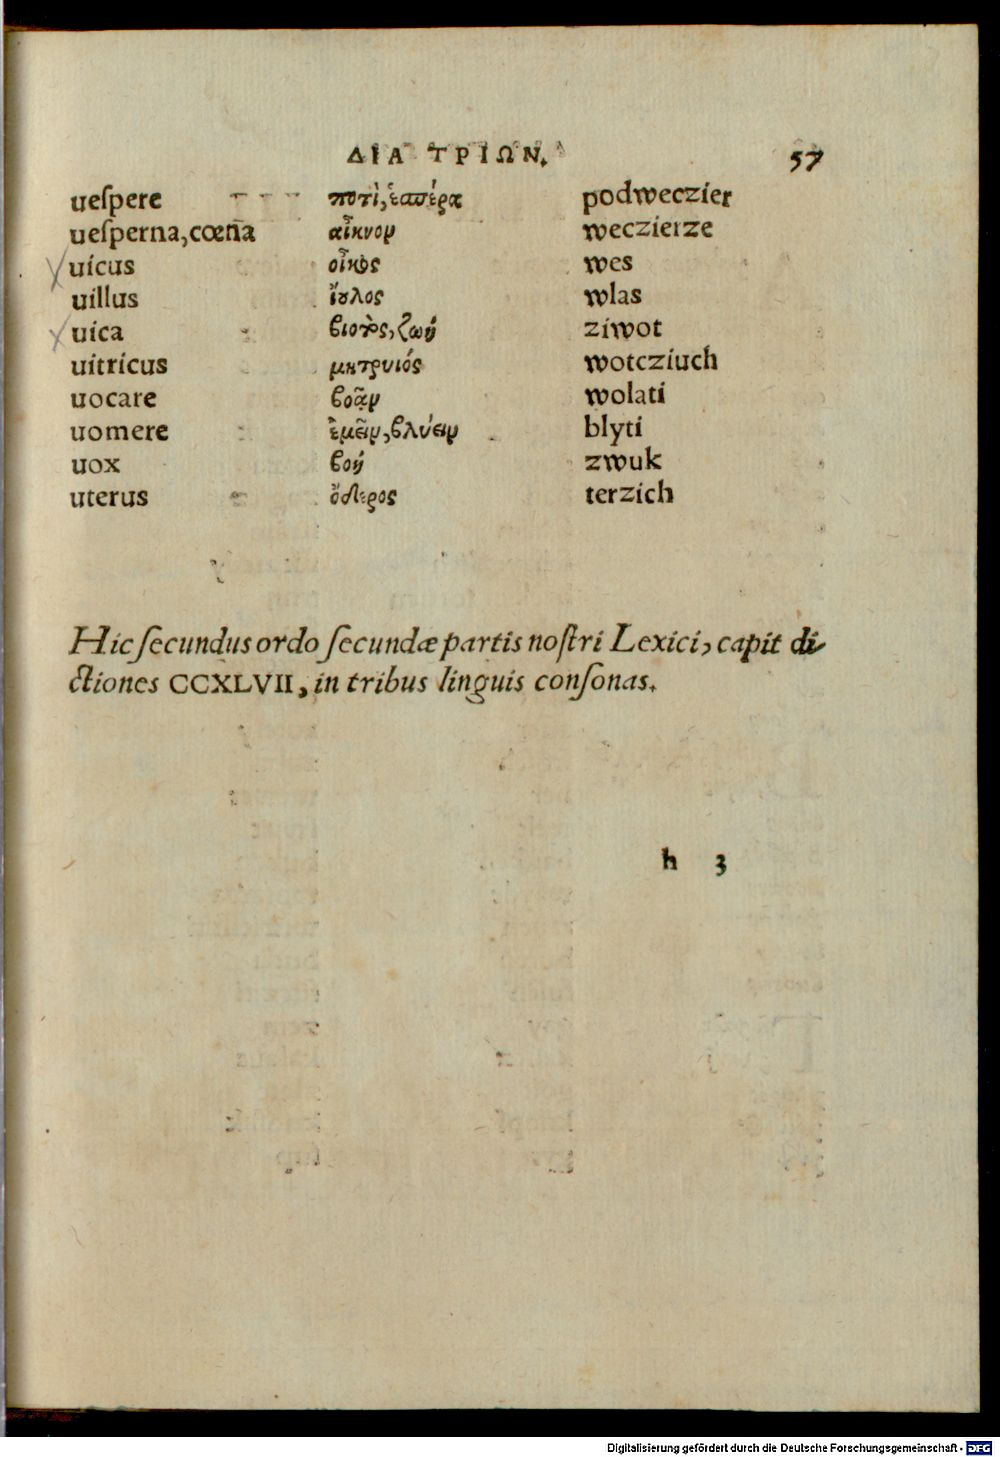 ΔΙΑ ΤΡΙΩΝ. 57
ueſpere ποτὶ, ἑασέρα podweczier
ueſperna, cœna αἶκνον weczierze
uicus οἶκος wes
uillus ἴουλος wlas
uica βιοτὸς, ζωή ziwot
uitricus μητρυιός wotcziuch
uocare βοᾶν wolati
uomere ἐμεῖν, βλύειν blyti
uox βοή zwuk
uterus ὅδερος terzich
Hic ſecundus ordo ſecundæ partis noſtri Lexici, capit di-
ctiones CCXLVII, in tribus linguis conſonas.
h 3
Digitalisierung gefördert durch die Deutsche Forschungsgemeinschaft - DFG